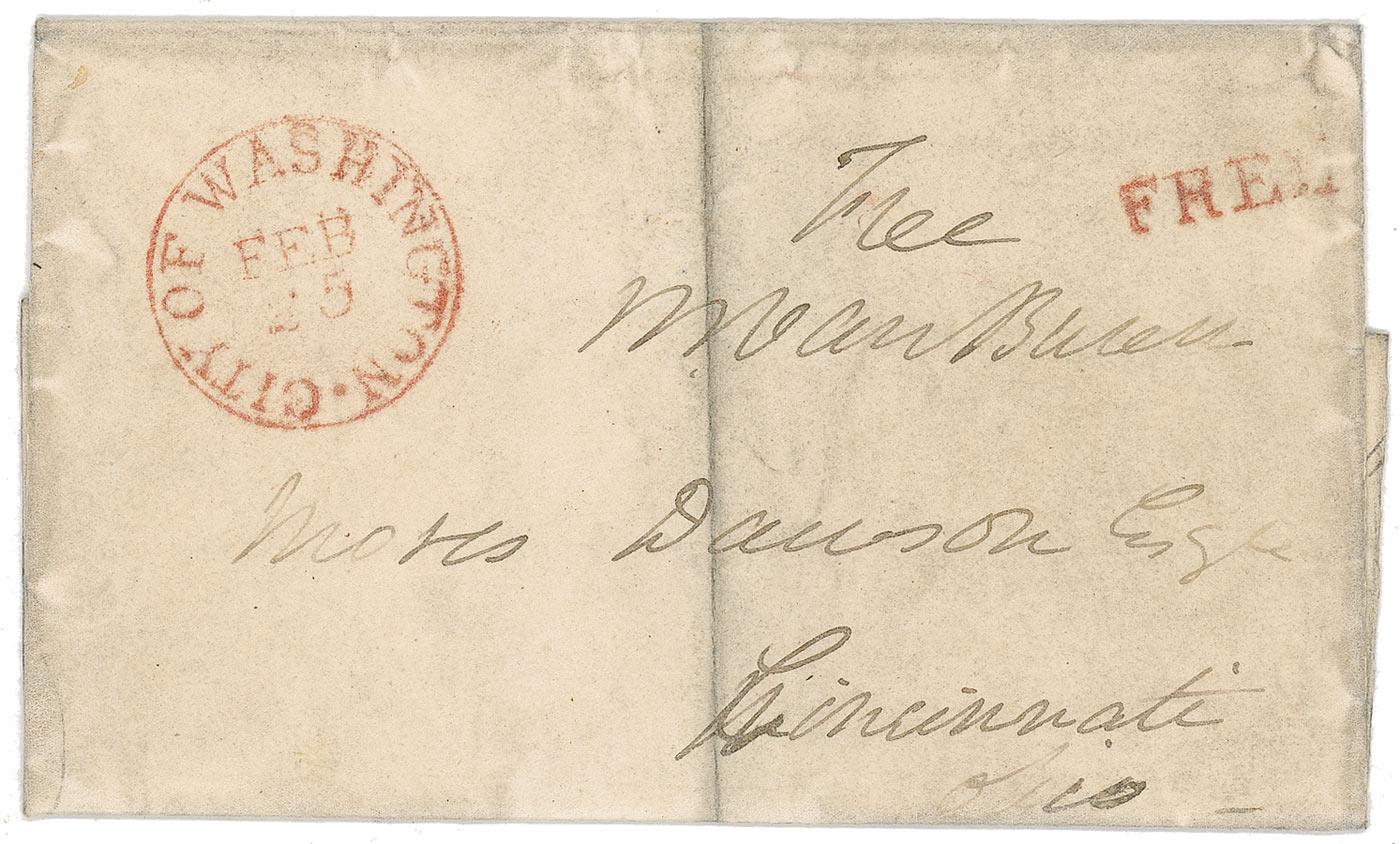 CITY OF WASHINGTON.
FEB
15
FREE
Free
MVanBuren
Moses Dawson Esqr
Cincinnati
Ohio